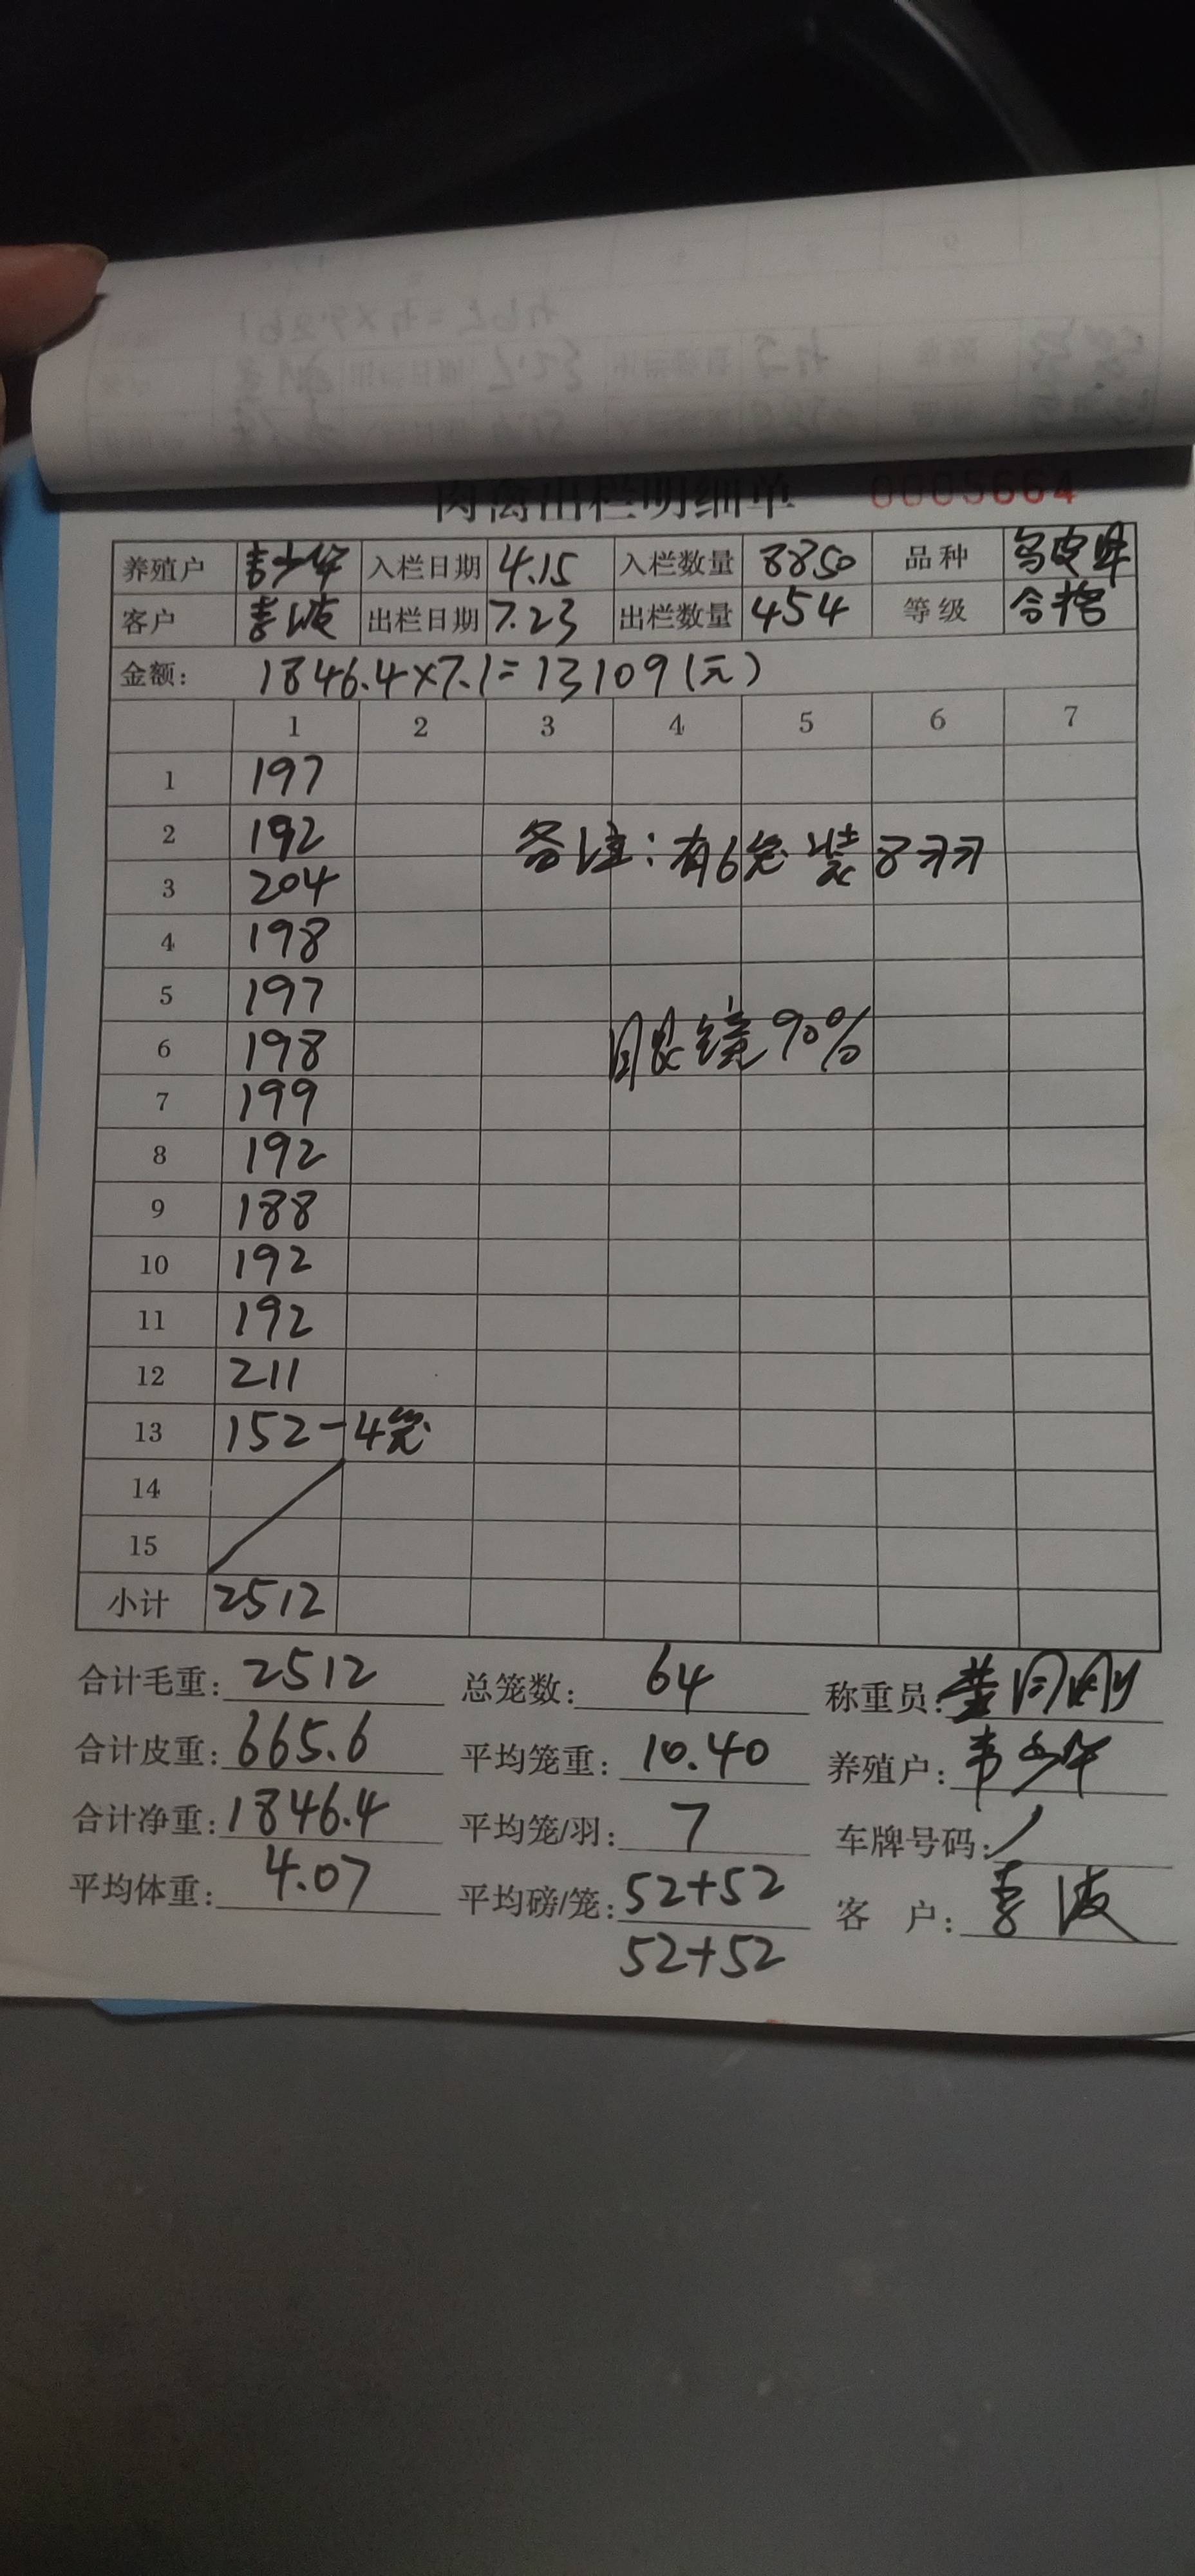 肉禽出栏明细单 0005664
养殖户 韦少华 入栏日期 4.15 入栏数量 8850 品种 乌皮
客户 李波 出栏日期 7.23 出栏数量 454 等级 合格
金额: 1846.4×7.1=13109(元)
1 2 3 4 5 6 7
1 197
2 192
备注:有6笼装8羽
3 204
4 198
5 197
6 198
眼镜90%
7 199
8 192
9 188
10 192
11 192
12 211
13 152-4笼
14
15
小计 2512
合计毛重: 2512 总笼数: 64 称重员:
合计皮重: 665.6 平均笼重: 10.40 养殖户: 韦少华
合计净重: 1846.4 平均笼/羽: 7 车牌号码: /
平均体重: 4.07 平均磅/笼: 52+52 客 户: 李波
52+52